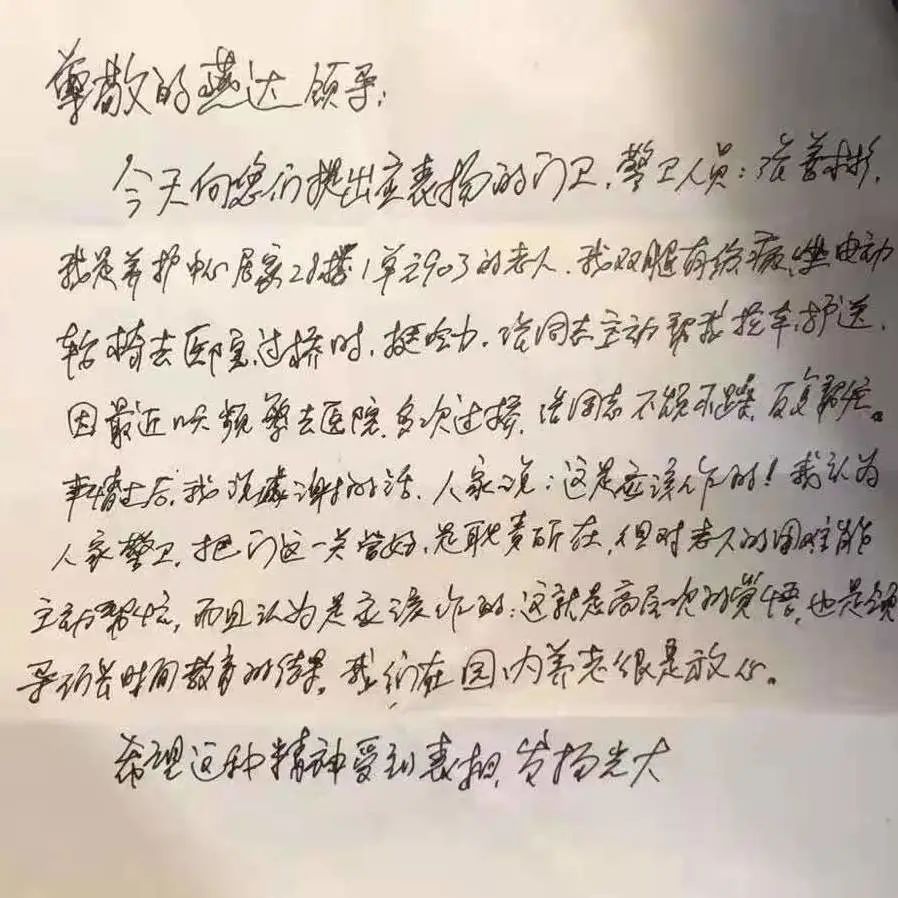 尊敬的燕达领导：
今天向您们提出应表扬的门卫，警卫人员：张善彬，
我是养护中心居家28楼1单元903的老人，我双腿有伤病，坐电动
轮椅去医院过桥时，挺吃力，该同志主动帮我推车护送，
因最近以来频繁去医院，多次过桥，该同志不烦不躁，反复帮忙。
事情过后，我说感谢的话，人家说：这是应该作的！我认为
人家警卫，把门这一关管好，是职责所在，但对老人的困难能
主动帮忙，而且认为是应该作的：这就是高层次的觉悟，也是领
导们长时间教育的结果，我们在园内养老很是放心。
希望这种精神受到表扬，发扬光大